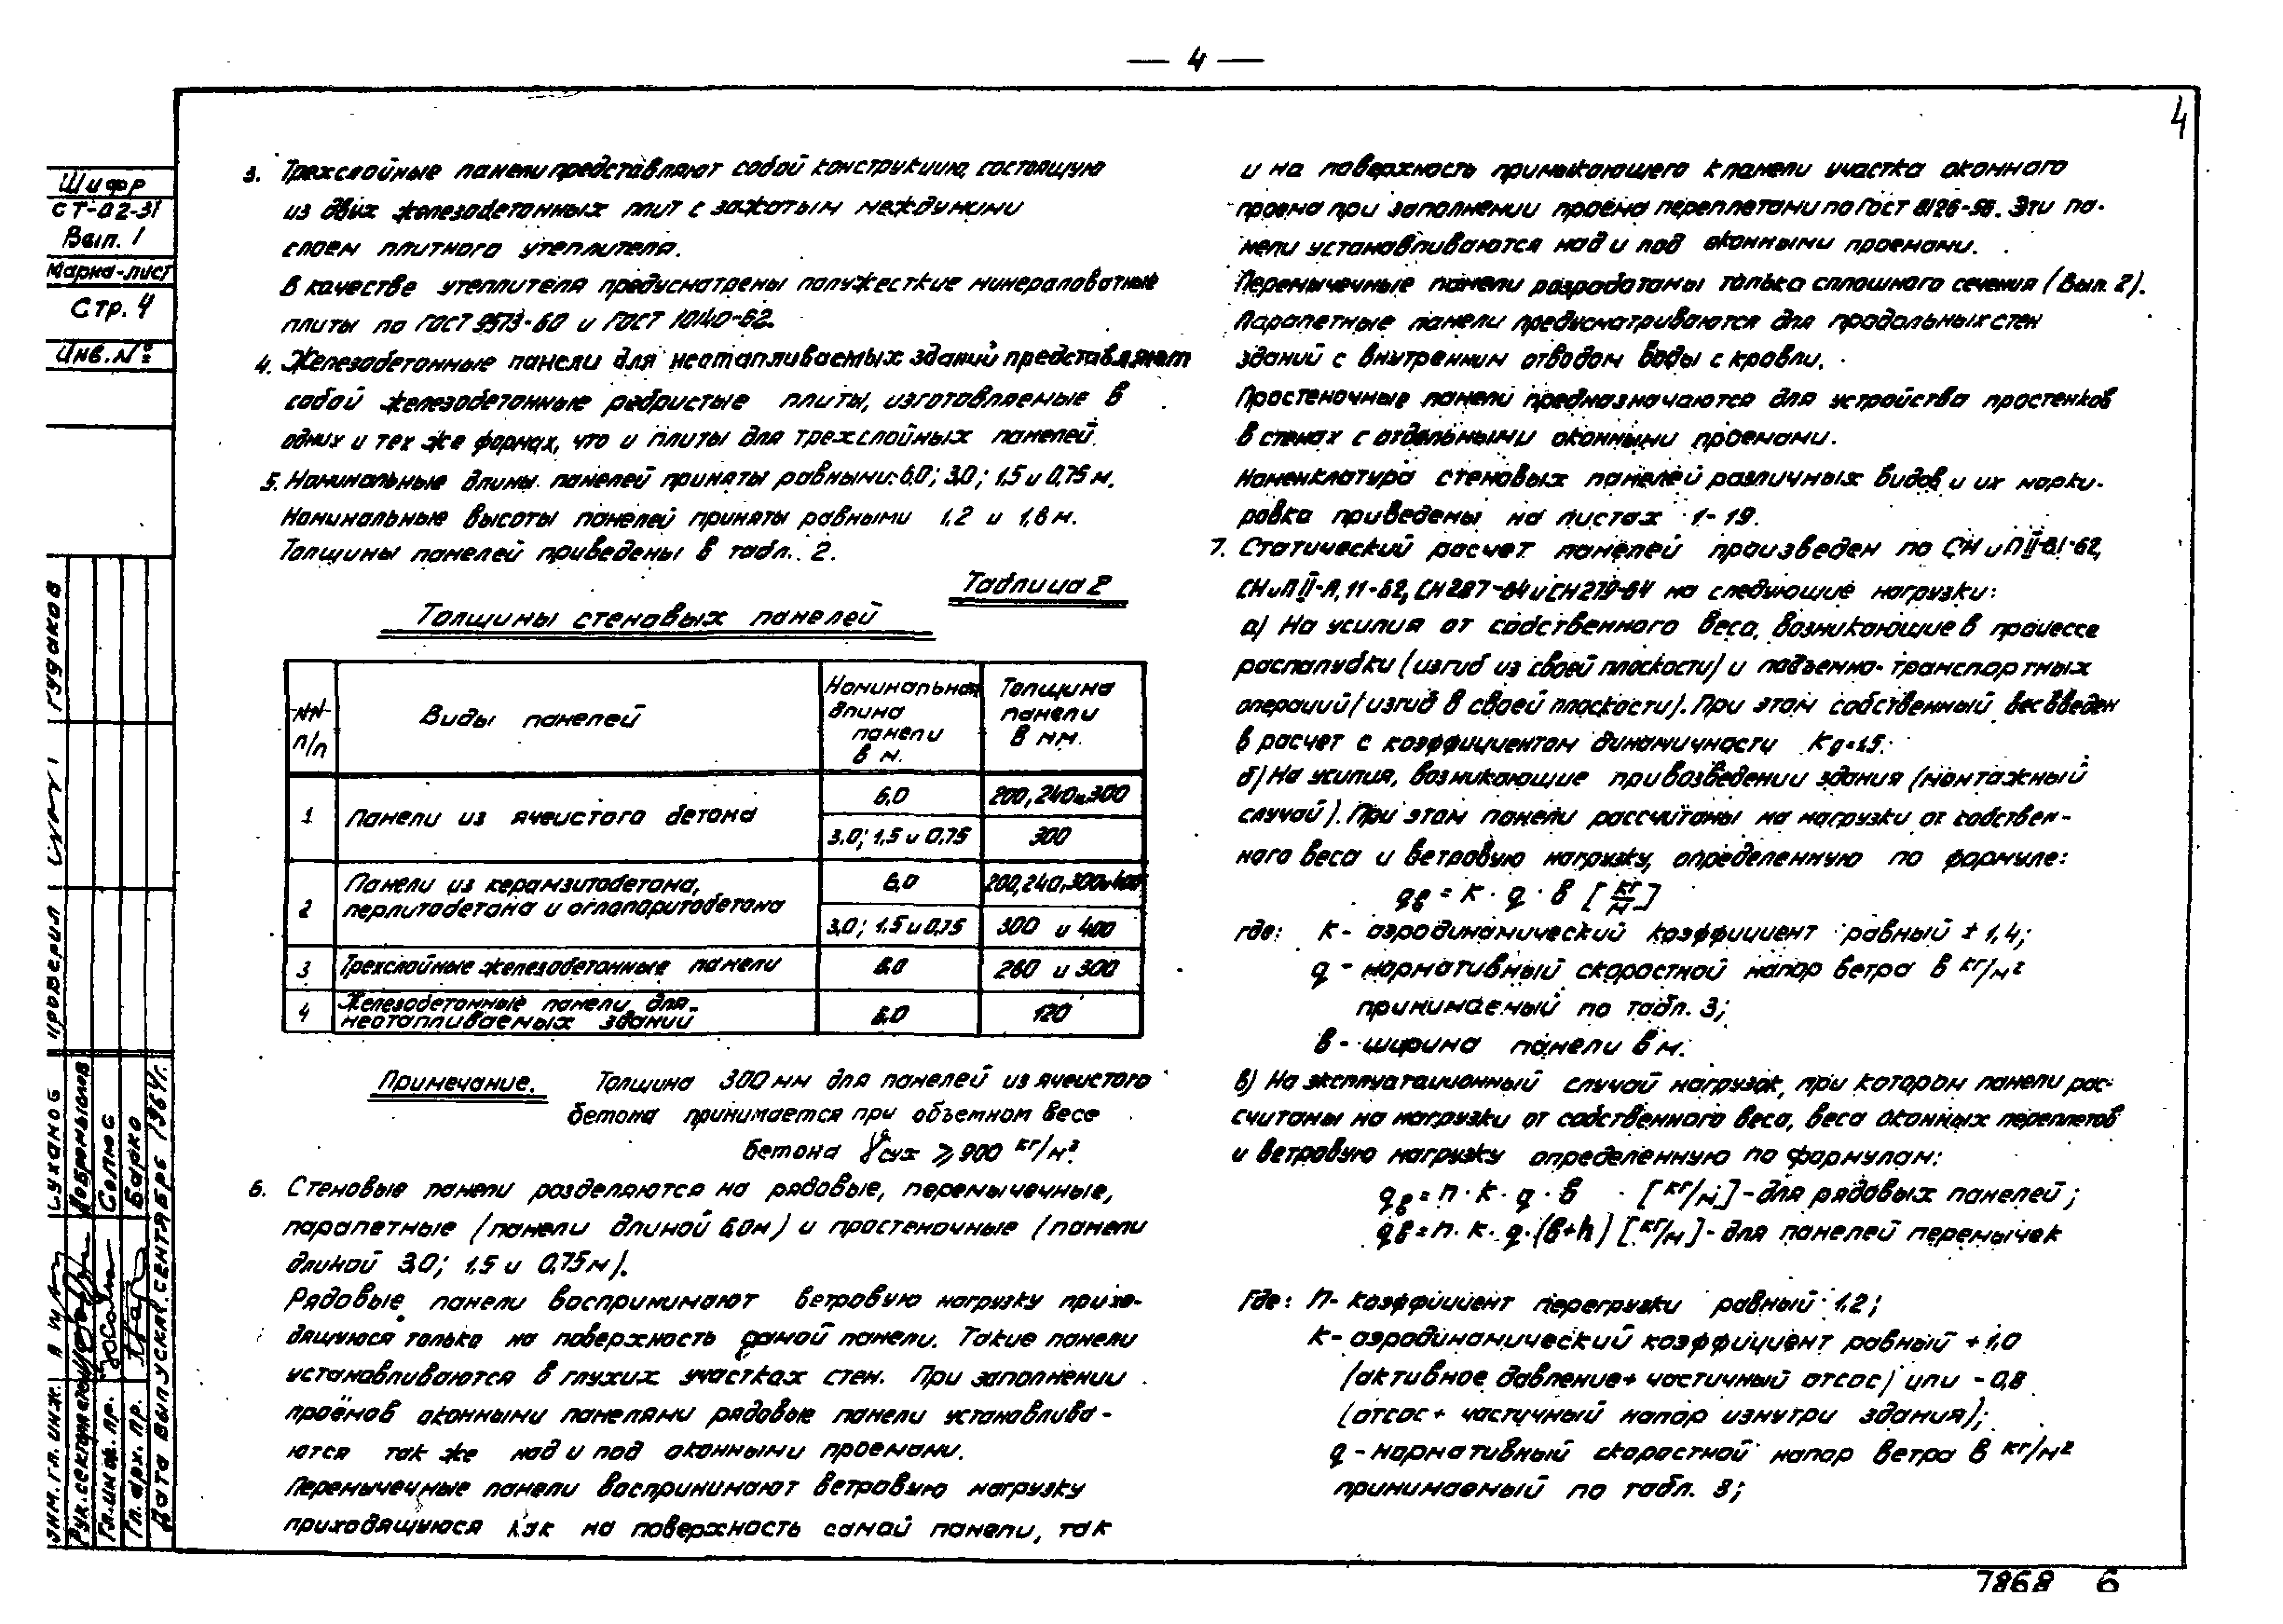 — 4 —
4
Шифр
СТ-02-31
Вып. 1
Марка-лист
Стр. 4
Инв. №
3. Трехслойные панели представляют собой конструкцию, состоящую
из двух железобетонных плит с зажатым между ними
слоем плитного утеплителя.
В качестве утеплителя предусмотрены полужесткие минераловатные
плиты по ГОСТ 9573-60 и ГОСТ 10140-62.
4. Железобетонные панели для неотапливаемых зданий представляют
собой железобетонные ребристые плиты, изготовляемые в
одних и тех же формах, что и плиты для трехслойных панелей.
5. Номинальные длины панелей приняты равными: 6,0; 3,0; 1,5 и 0,75 м.
Номинальные высоты панелей приняты равными 1,2 и 1,8 м.
Толщины панелей приведены в табл. 2.
Таблица 2
Толщины стеновых панелей
NN п/п
Виды панелей
Номинальная длина панели в м.
Толщина панели в мм.
1 Панели из ячеистого бетона 6,0 200, 240 и 300
3,0; 1,5 и 0,75 300
2 Панели из керамзитобетона, перлитобетона и аглопоритобетона 6,0 200, 240, 300 и 400
3,0; 1,5 и 0,75 300 и 400
3 Трехслойные железобетонные панели 6.0 260 и 300
4 Железобетонные панели для неотапливаемых зданий 6.0 120
Примечание. Толщина 300 мм для панелей из ячеистого
бетона принимается при объемном весе
бетона γсух ⩾ 900 кг/м².
6. Стеновые панели разделяются на рядовые, перемычечные,
парапетные (панели длиной 6,0м) и простеночные (панели
длиной 3,0; 1,5 и 0,75 м).
Рядовые панели воспринимают ветровую нагрузку прихо-
дящуюся только на поверхность самой панели. Такие панели
устанавливаются в глухих участках стен. При заполнении
проёмов оконными панелями рядовые панели устанавлива-
ются так же над и под оконными проемами.
Перемычечные панели воспринимают ветровую нагрузку
приходящуюся как на поверхность самой панели, так
и на поверхность примыкающего к панели участка оконного
проема при заполнении проёма переплетами по ГОСТ 8126-56. Эти па-
нели устанавливаются над и под оконными проемами.
Перемычечные панели разработаны только сплошного сечения (Вып. 2).
Парапетные панели предусматриваются для продольных стен
зданий с внутренним отводом воды с кровли.
Простеночные панели предназначаются для устройства простенков
в стенах с отдельными оконными проемами.
Номенклатура стеновых панелей различных видов и их марки-
ровка приведены на листах 1-19.
7. Статический расчет панелей произведен по СНиП II-В.1-62,
СНиП II-А.11-62, СН 287-64 и СН 279-64 на следующие нагрузки:
а) На усилия от собственного веса, возникающие в процессе
распалубки (изгиб из своей плоскости) и подъемно-транспортных
операций (изгиб в своей плоскости). При этом собственный вес введен
в расчет с коэффициентом динамичности Kд=1,5.
б) На усилия, возникающие при возведении здания (монтажный
случай). При этом панели рассчитаны на нагрузки от собствен-
ного веса и ветровую нагрузку, определенную по формуле:
qв = к · q · в [кг/м]
где: к - аэродинамический коэффициент равный ± 1,4;
q - нормативный скоростной напор ветра в кг/м²
принимаемый по табл. 3;
в - ширина панели в м.
в) На эксплуатационный случай нагрузок, при котором панели рас-
считаны на нагрузки от собственного веса, веса оконных переплетов
и ветровую нагрузку определенную по формулам:
qв = п · к · q · в [кг/м] - для рядовых панелей;
qв = п · к · q · (в+h) [кг/м] - для панелей перемычек
Где: п - коэффициент перегрузки равный 1,2;
к - аэродинамический коэффициент равный + 1,0
(активное давление + частичный отсос) или - 0,8
(отсос + частичный напор изнутри здания);
q - нормативный скоростной напор ветра в кг/м²
принимаемый по табл. 3;
Проверил Гудаков
Зам. гл. инж. Суханов
Рук. сектора Добромыслов
Гл. инж. пр.
Гл. арх. пр. Барко
Дата выпуска: сентябрь 1964г.
7868 6